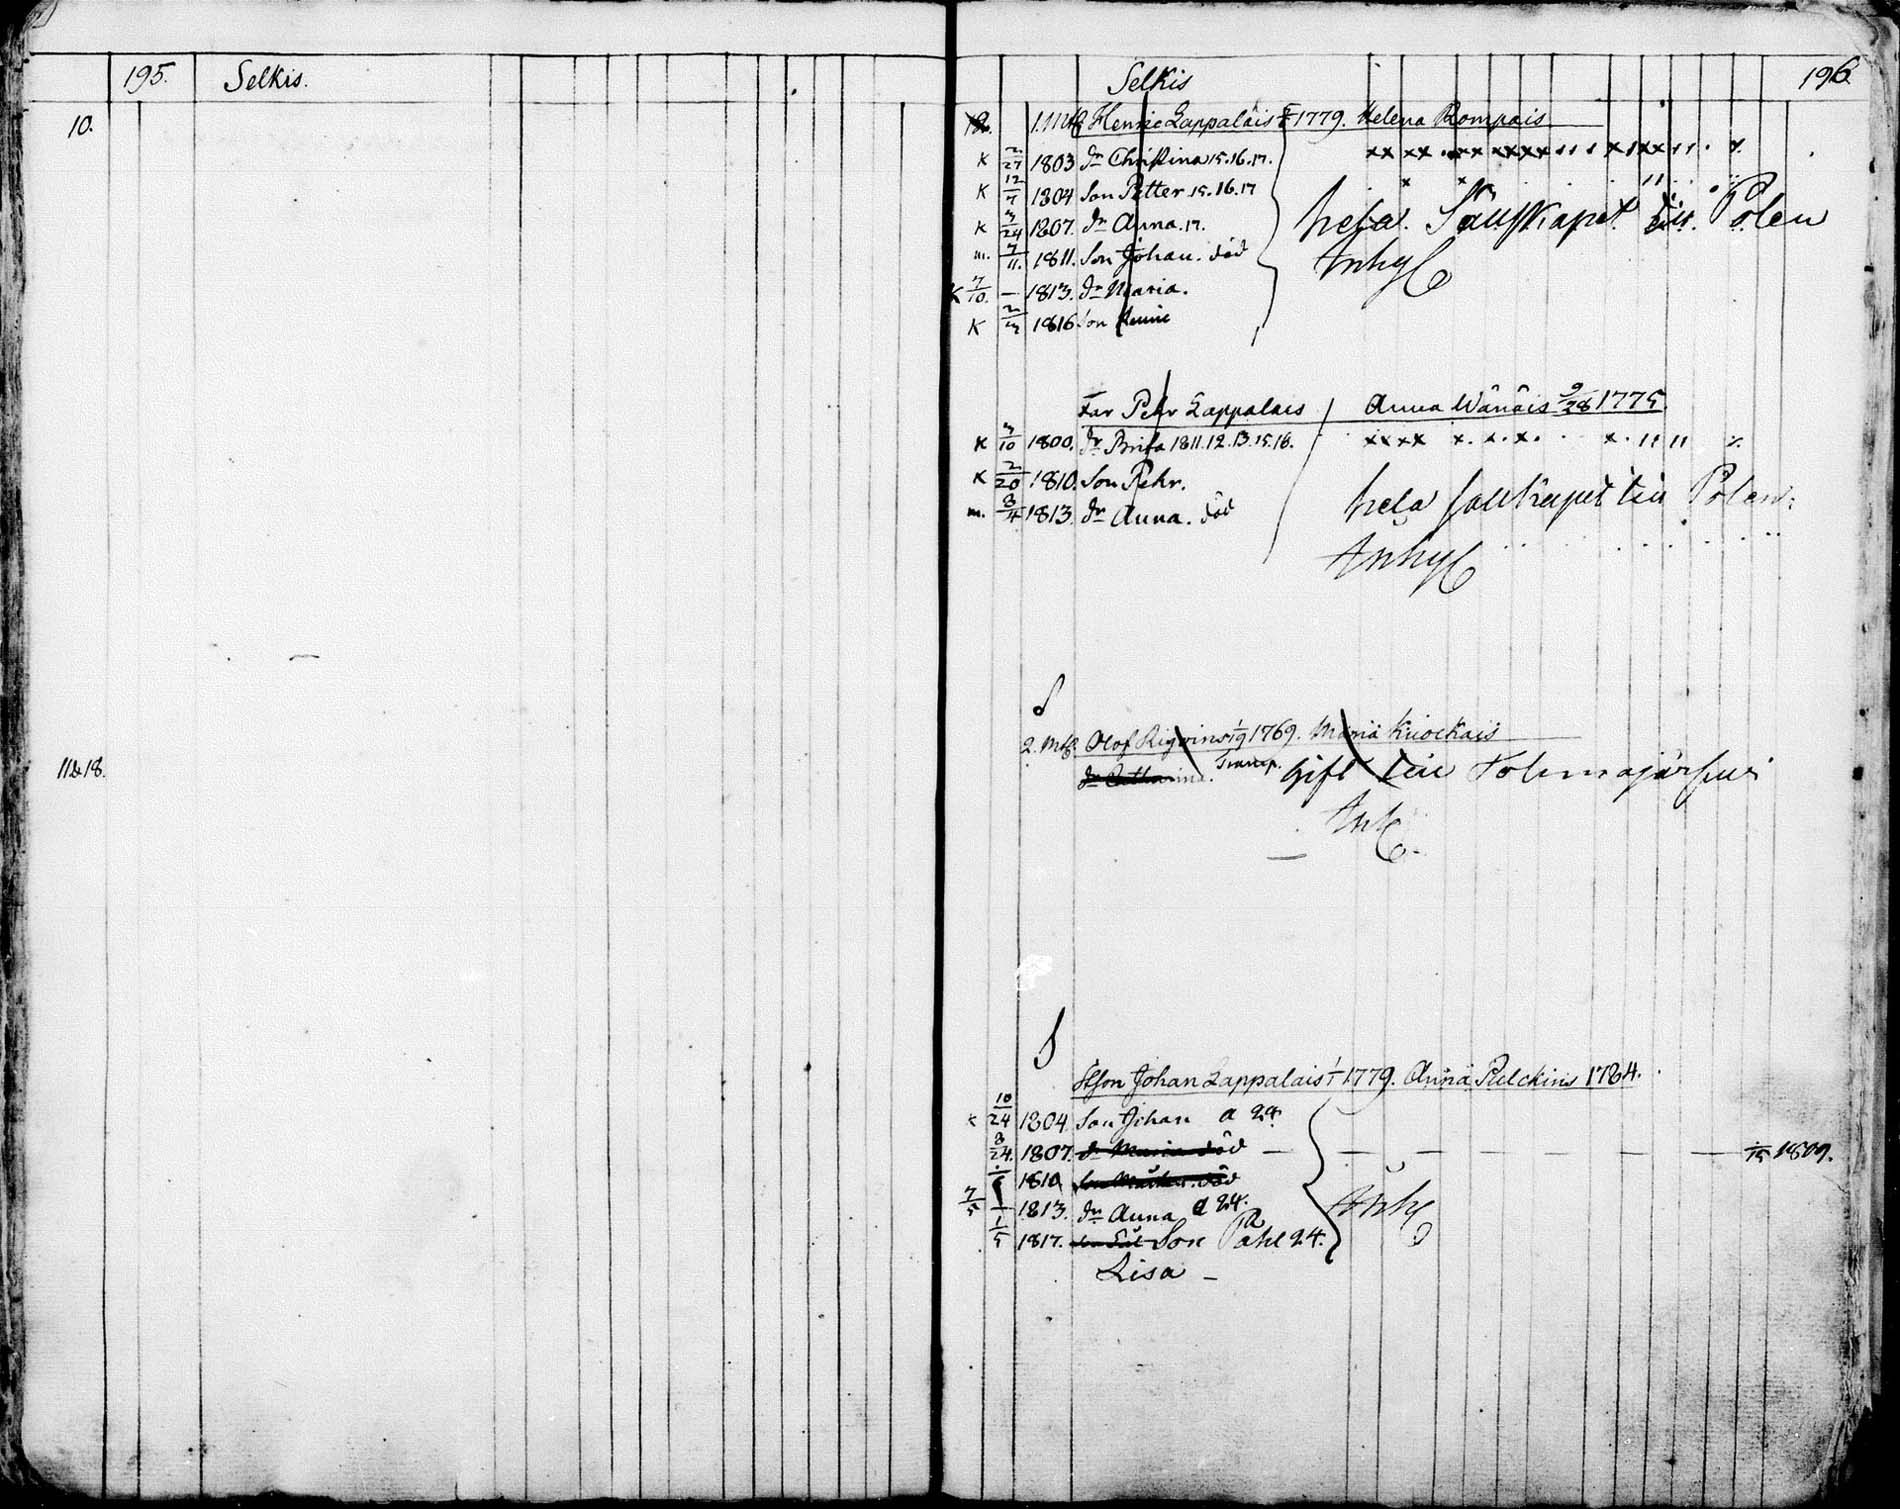 195. Selkis.
10.
11 & 18.
Selkis 196
1. Mtg Henric Lappalais 1779. Helena Rompais
K 2/27 1803 dr Christina 15.16.17.
K 12/7 1804 Son Petter 15.16.17
K 3/24 1807. dr Anna. 17.
m. 7/11. 1811. Son Johan. död
K 7/10. – 1813. dr Maria.
K 2/3 1816 Son Henric
hela Sällskapet till Polen
Far Pehr Lappalais Anna Wänäis 9/28 1775.
K 3/10 1800. dr Brita 1811.12.13.15.16.
K 2/20 1810. Son Pehr.
m. 8/4 1813. dr Anna. död
hela sällskapet till Polen
2. Mtg. Olof Rigoins 1/9 1769. Maria Kuockais
dr Catharina. Transp. gift till Tolmajärfwi
Johan Lappalais 1779. Anna Pulckins 1784.
K 10/24 1804. Son Johan a 24.
8/24. 1807. dr Maria död — — — — — — /15 1809.
1810 död
7/5 – 1813. dr Anna a 24.
1/5 1817. Son Påhl 24.
Lisa –